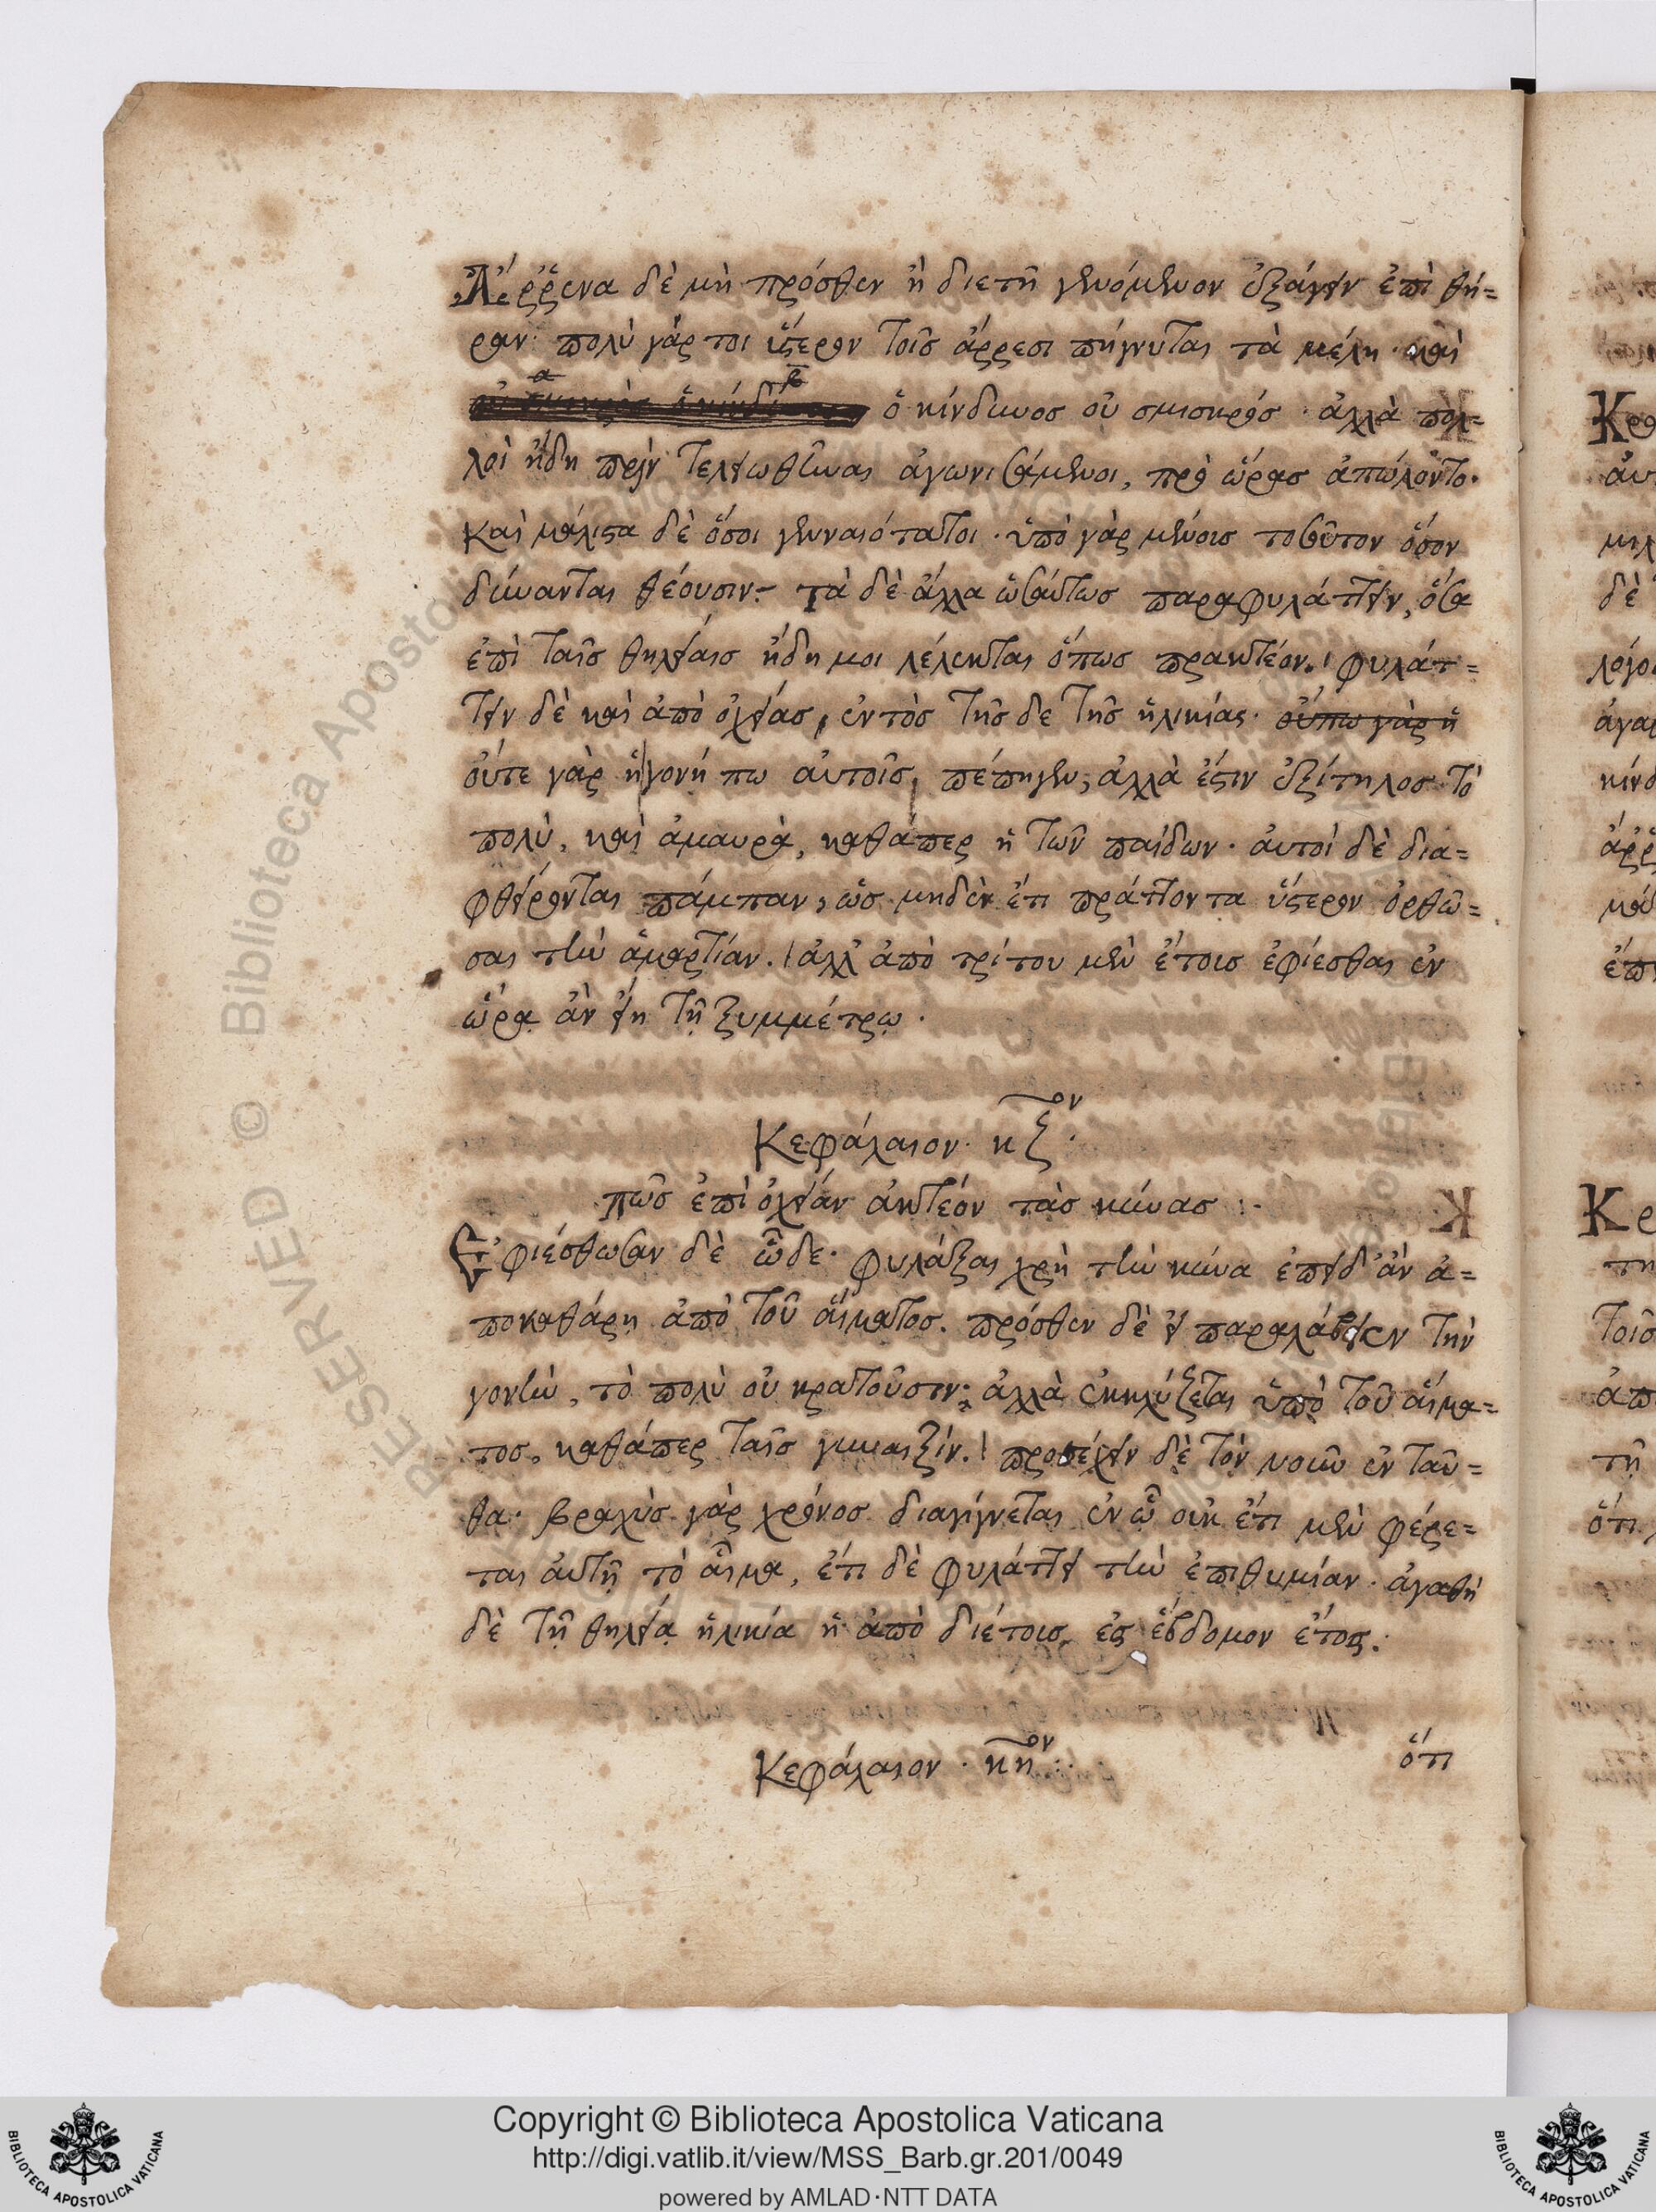 Ἄῤῥενα δὲ μὴ πρόσθεν ἢ διετῆ γενόμενον ἐξάγειν ἐπὶ θή=
ραν· πολὺ γάρ τοι ὕστερον τοῖς ἄρρεσι πήγνυται τὰ μέλη· καὶ
ὁ κίνδυνος οὐ σμικρός· ἀλλὰ πολ=
λοὶ ἤδη πρὶν τελεωθῆναι ἀγωνισάμενοι, πρὸ ὥρας ἀπώλοντο.
καὶ μάλιστα δὲ ὅσοι γενναιότατοι· ὑπὸ γὰρ μένους τοσοῦτον ὅσον
δύνανται θέουσιν· τὰ δὲ ἄλλα ὡσαύτως παραφυλάττειν, ὅσα
ἐπὶ ταῖς θηλείαις ἤδη μοι λέλεκται ὅπως πρακτέον. φυλάτ=
τειν δὲ καὶ ἀπὸ ὀχείας, ἐντὸς τῆς δε τῆς ἡλικίας· οὔπω γὰρ ἡ
οὔτε γὰρ ἡ γονή πω αὐτοῖς, πέπηγεν, ἀλλὰ ἔστιν ἐξίτηλος τὸ
πολὺ, καὶ ἀμαυρὰ, καθάπερ ἡ τῶν παίδων· αὐτοί δὲ δια=
φθείρονται πάμπαν, ὡς μηδὲν ἔτι πράττοντα ὕστερον ὀρθῶ=
σαι τὴν ἁμαρτίαν. ἀλλ' ἀπὸ τρίτου μὲν ἔτους ἐφίεσθαι ἐν
ὥρᾳ ἂν εἴη τῇ ξυμμέτρῳ.
Κεφάλαιον· κζ΄ον·
πῶς ἐπὶ ὀχείαν ἀκτέον τὰς κύνας :·
Ἐφιέσθωσαν δὲ ὧδε· φυλάξαι χρὴ τὴν κύνα ἐπειδ' ἂν ἀ=
ποκαθάρῃ ἀπὸ τοῦ αἵματος. πρόσθεν δὲ εἰ παραλάβοιεν τὴν
γονὴν, τὸ πολὺ οὐ κρατοῦσιν· ἀλλὰ ἐκκλύζεται ὑπὸ τοῦ αἵμα=
τος, καθάπερ ταῖς γυναιξίν. προσέχειν δὲ τὸν νοῦν ἐν ταῦ=
θα· βραχὺς γὰρ χρόνος διαγίγνεται ἐν ᾧ οὐκ ἔτι μὲν φέρε=
ται αὐτῇ τὸ αἷμα, ἔτι δὲ φυλάττει τὴν ἐπιθυμίαν· ἀγαθὴ
δὲ τῇ θηλείᾳ ἡλικία ἡ ἀπὸ διέτους, ἐς ἕβδομον ἔτος.
Κεφάλαιον· κη΄ον·
ὅτι
Copyright © Biblioteca Apostolica Vaticana
http://digi.vatlib.it/view/MSS_Barb.gr.201/0049
powered by AMLAD·NTT DATA